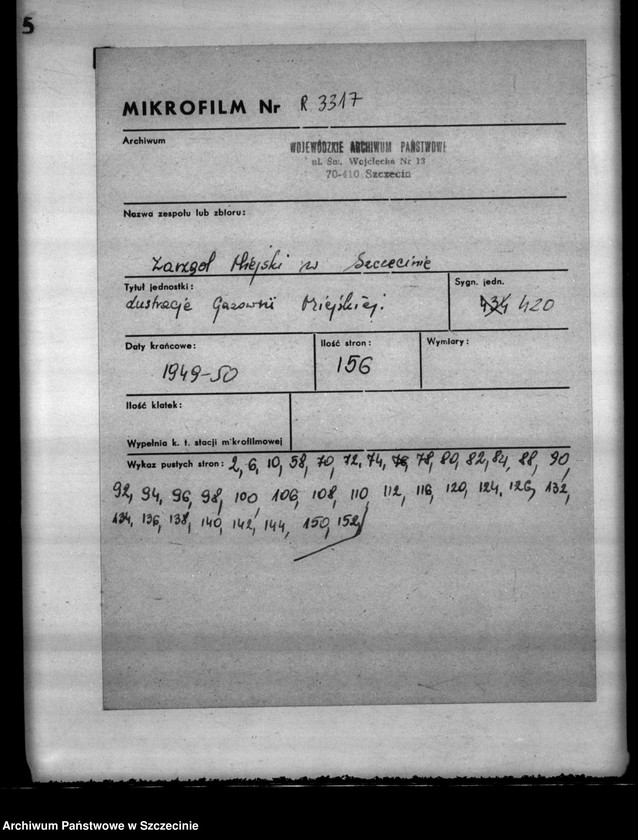 5
MIKROFILM Nr R 3317
Archiwum
WOJEWÓDZKIE ARCHIWUM PAŃSTWOWE
ul. Św. Wojciecha Nr 13
70-410 Szczecin
Nazwa zespołu lub zbioru:
Zarząd Miejski w Szczecinie
Tytuł jednostki:
Lustracje Gazowni Miejskiej.
Sygn. jedn.
434 420
Daty krańcowe:
1949-50
Ilość stron:
156
Wymiary:
Ilość klatek:
Wypełnia k. t. stacji mikrofilmowej
Wykaz pustych stron: 2, 6, 10, 58, 70, 72, 74, 76, 78, 80, 82, 84, 88, 90,
92, 94, 96, 98, 100, 106, 108, 110, 112, 116, 120, 124, 126, 132,
134, 136, 138, 140, 142, 144, 150, 152
Archiwum Państwowe w Szczecinie